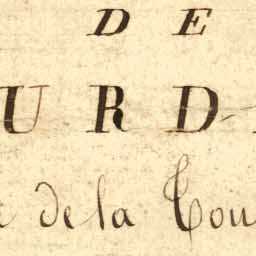 DE
URD
de la Tou